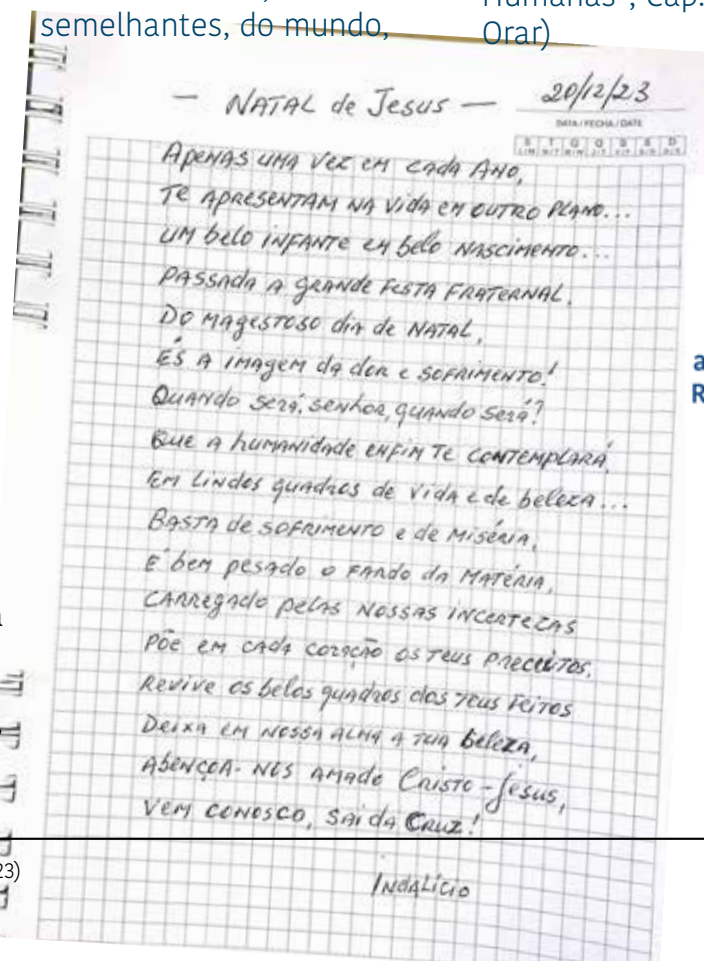 semelhantes, do mundo,
Humanas", Cap.
Orar)
— NATAL de Jesus —
20/12/23
DATA/FECHA/DATE
S T Q Q S S D
APENAS UMA VEZ EM CADA ANO,
TE APRESENTAM NA VIDA EM OUTRO PLANO...
UM belo INFANTE EM belo NASCIMENTO...
PASSADA A GRANDE FESTA FRATERNAL,
DO MAGESTOSO dia de NATAL,
ÉS A IMAGEM da dor e SOFRIMENTO!
QUANDO SERÁ, SENHOR, QUANDO SERÁ?
QUE A HUMANIDADE ENFIM TE CONTEMPLARÁ
EM LINDOS QUADROS DE VIDA E de beleza...
BASTA de SOFRIMENTO e de MISÉRIA,
É bem pesado o FARDO da MATÉRIA,
CARREGADO pelas NOSSAS INCERTEZAS
PÕE EM CADA CORAÇÃO OS TEUS PRECEITOS.
REVIVE os belos quadros dos TEUS FEITOS
DEIXA EM NOSSA ALMA A TUA beleza,
ABENÇOA-NOS AMADO CRISTO-Jesus,
VEM CONOSCO, SAI da CRUZ!
INDALÍCIO
a
R
23)